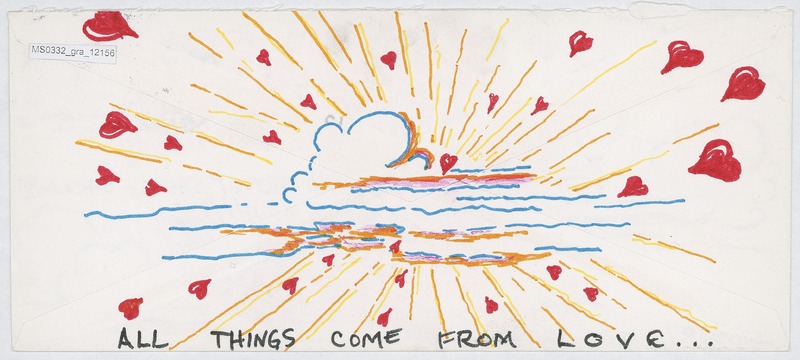 MS0332_gra_12156
ALL THINGS COME FROM LOVE...